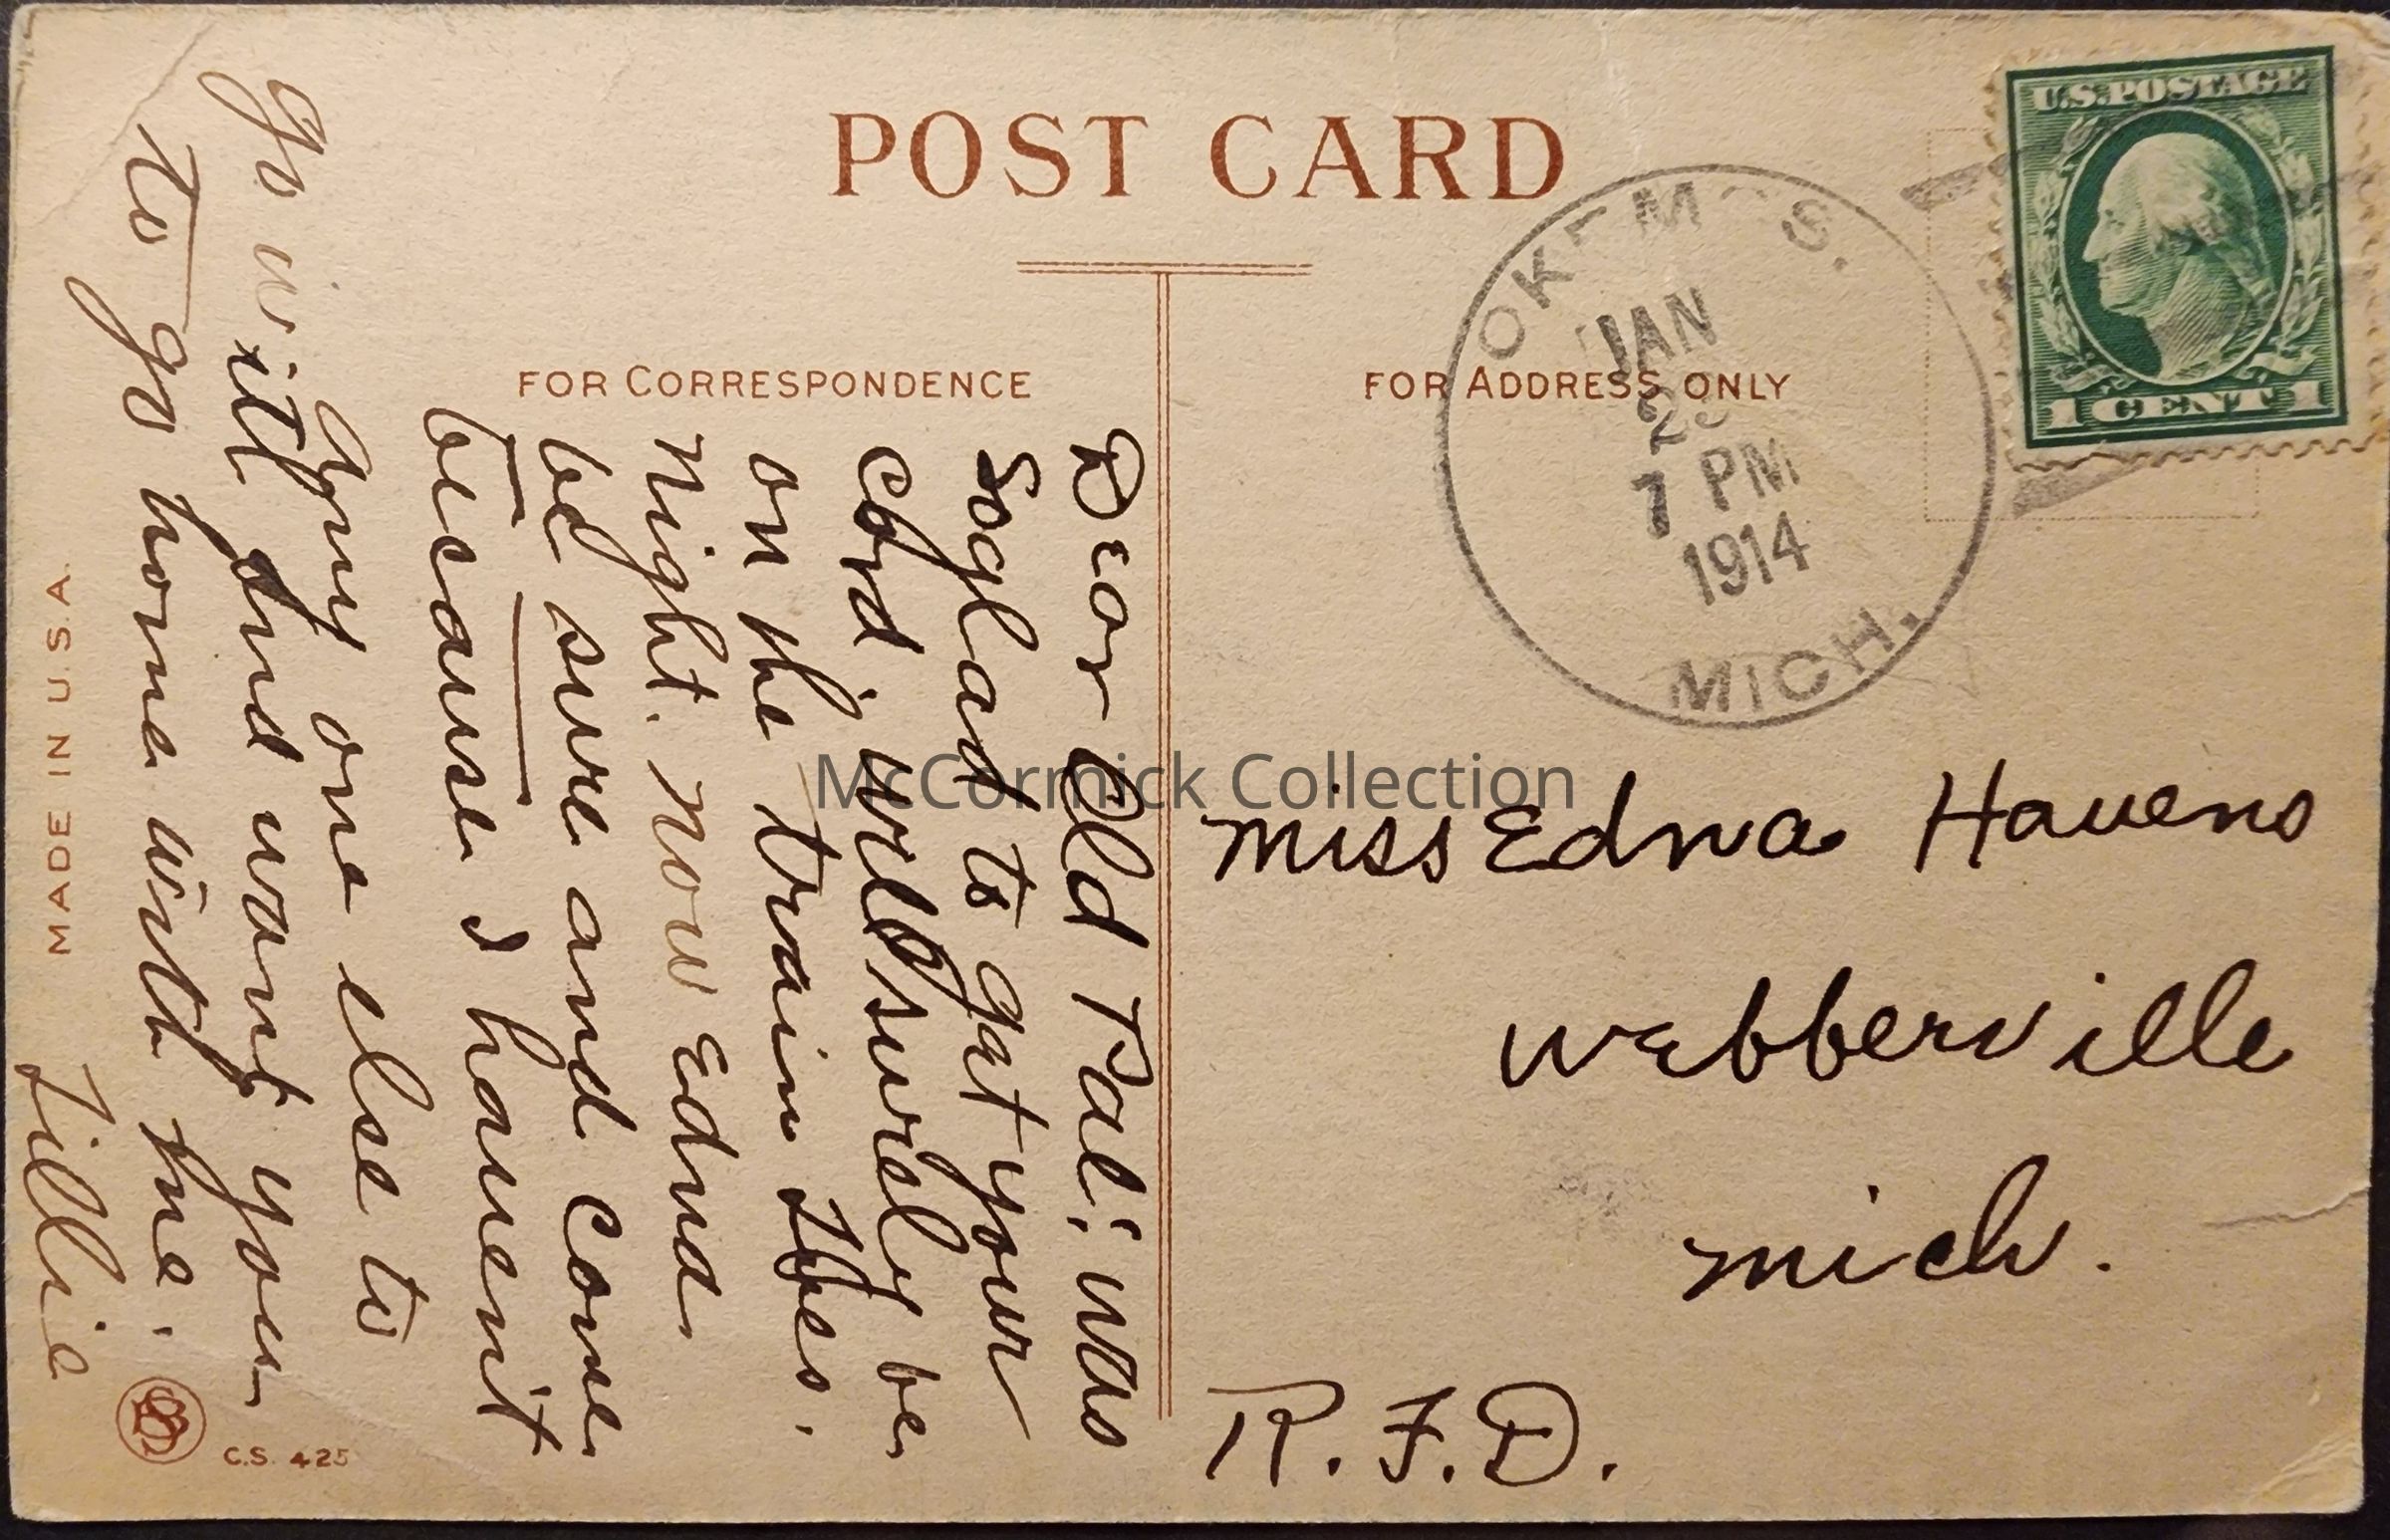 POST CARD
FOR CORRESPONDENCE
FOR ADDRESS ONLY
U.S. POSTAGE
1 CENT 1
OKEMOS.
JAN
7 PM
1914
MICH.
Dear Old Pal; was
so glad to get your
card, will surely be
on the train Tues.
night. Now Edna
be sure and come
because I havent
any one else to
go with and want you
to go home with me.
Lillie
Miss Edna Havens
Webberville
Mich.
R.F.D.
MADE IN U.S.A.
C.S. 425
McCormick Collection